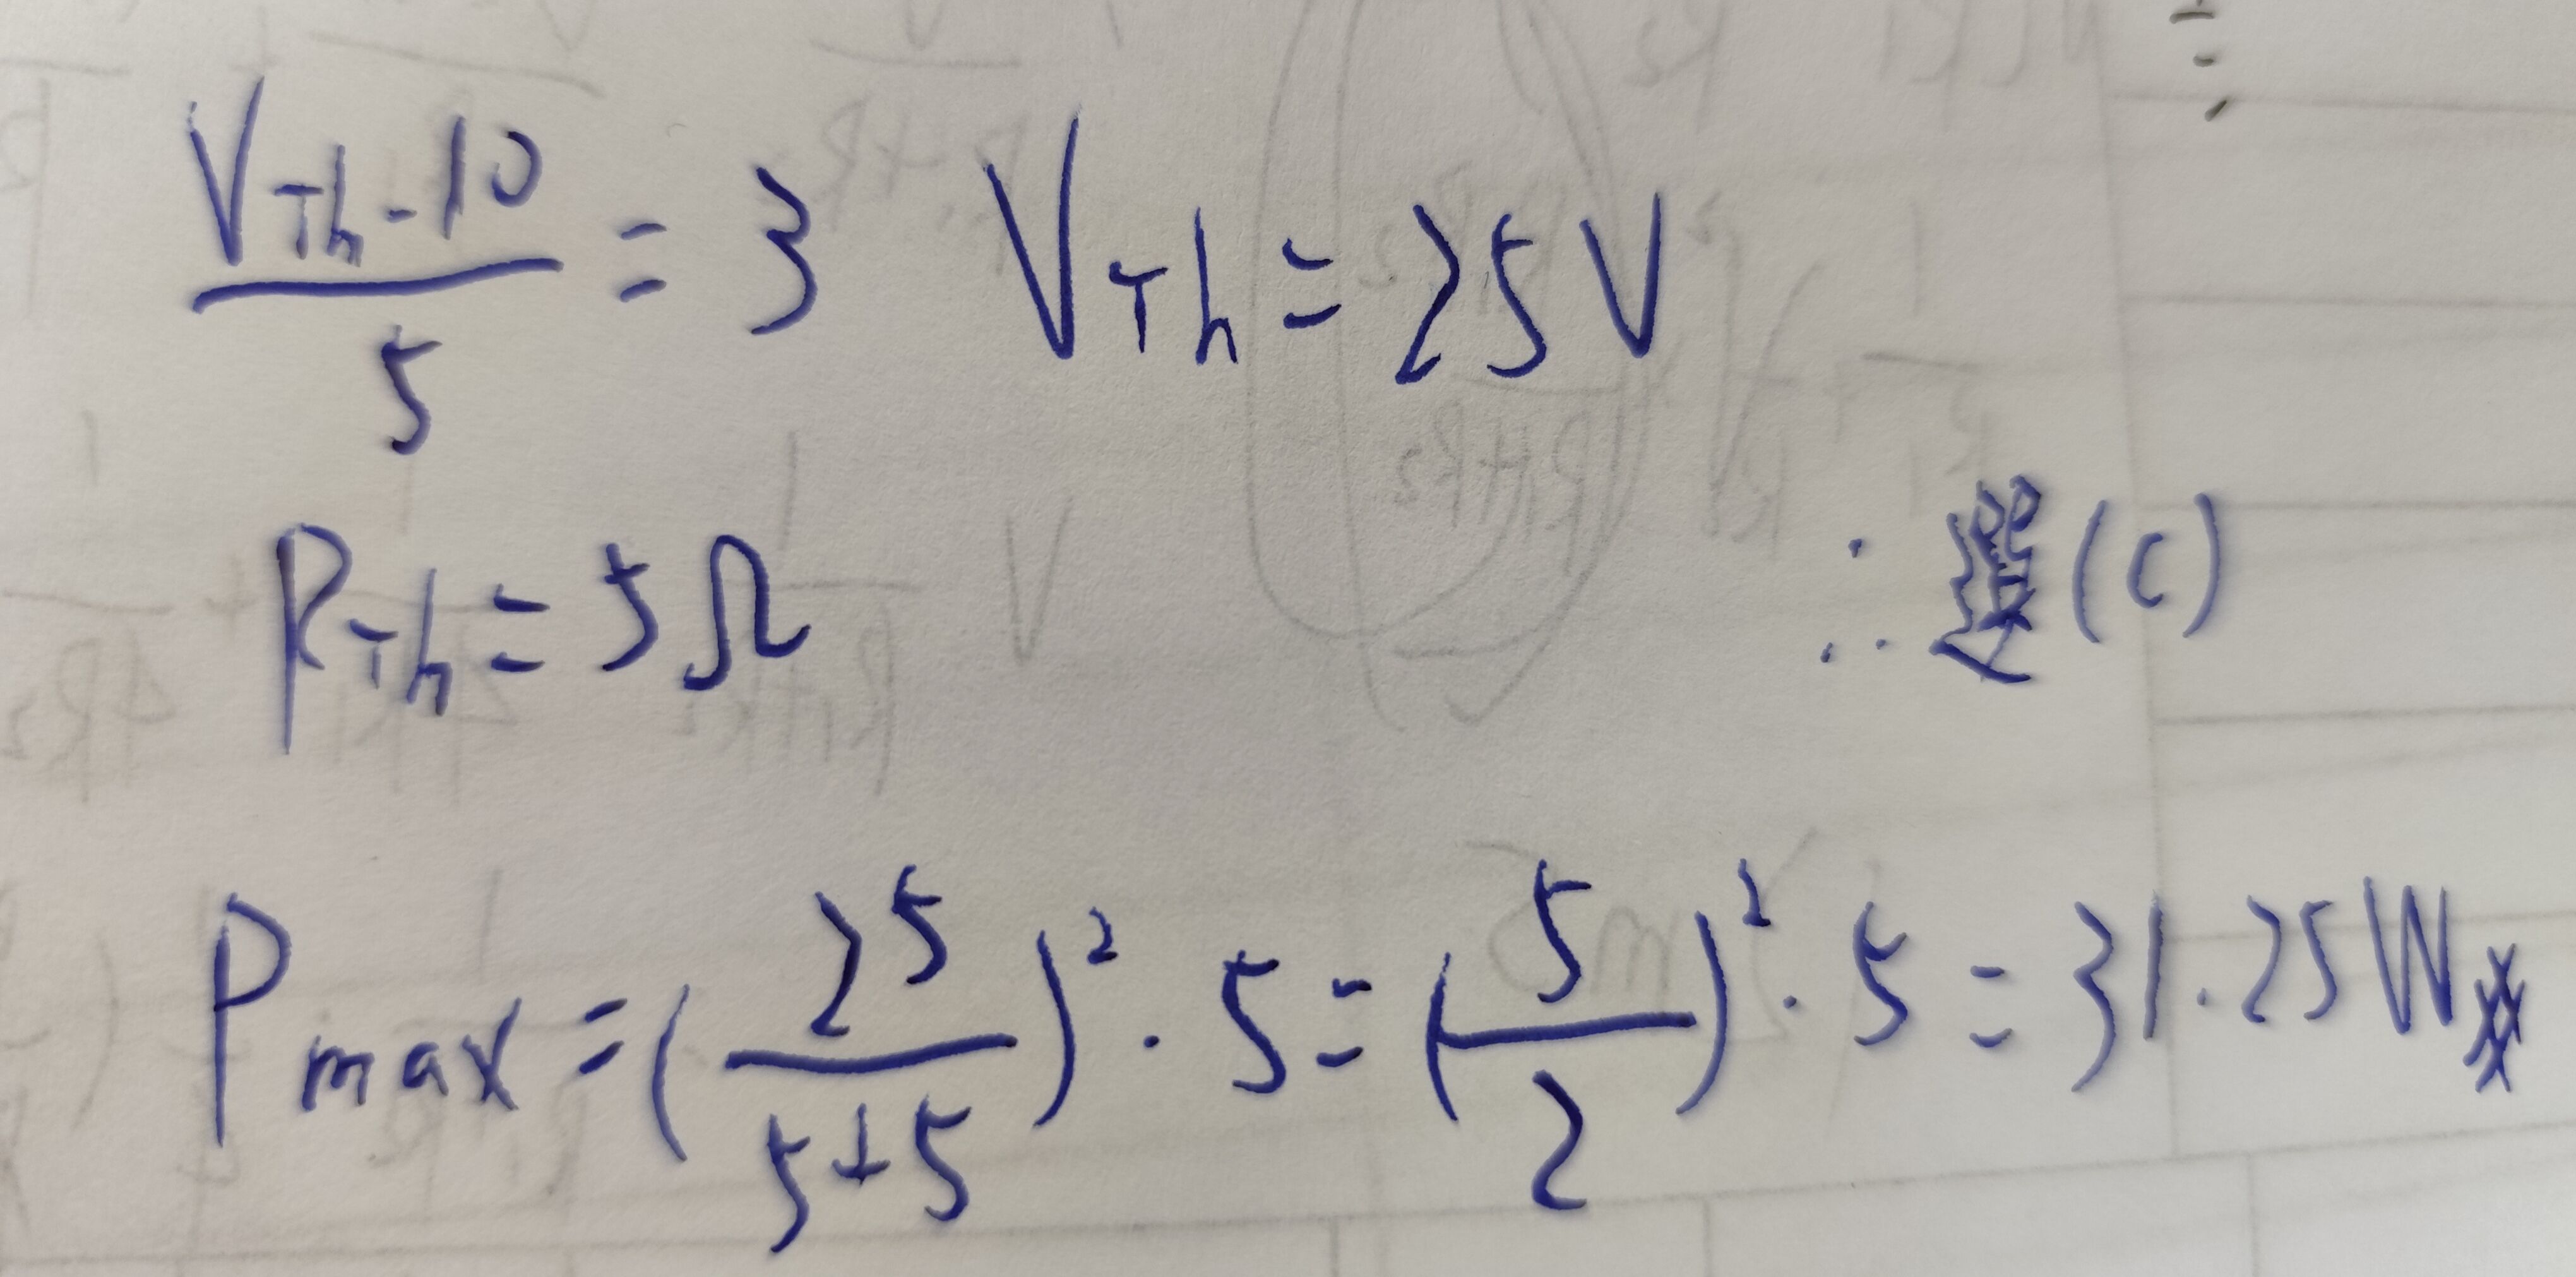 (V_Th - 10)/5 = 3 V_Th = 25V
R_Th = 5Ω
∴ 選(C)
P_max = (25/(5+5))² · 5 = (5/2)² · 5 = 31.25W